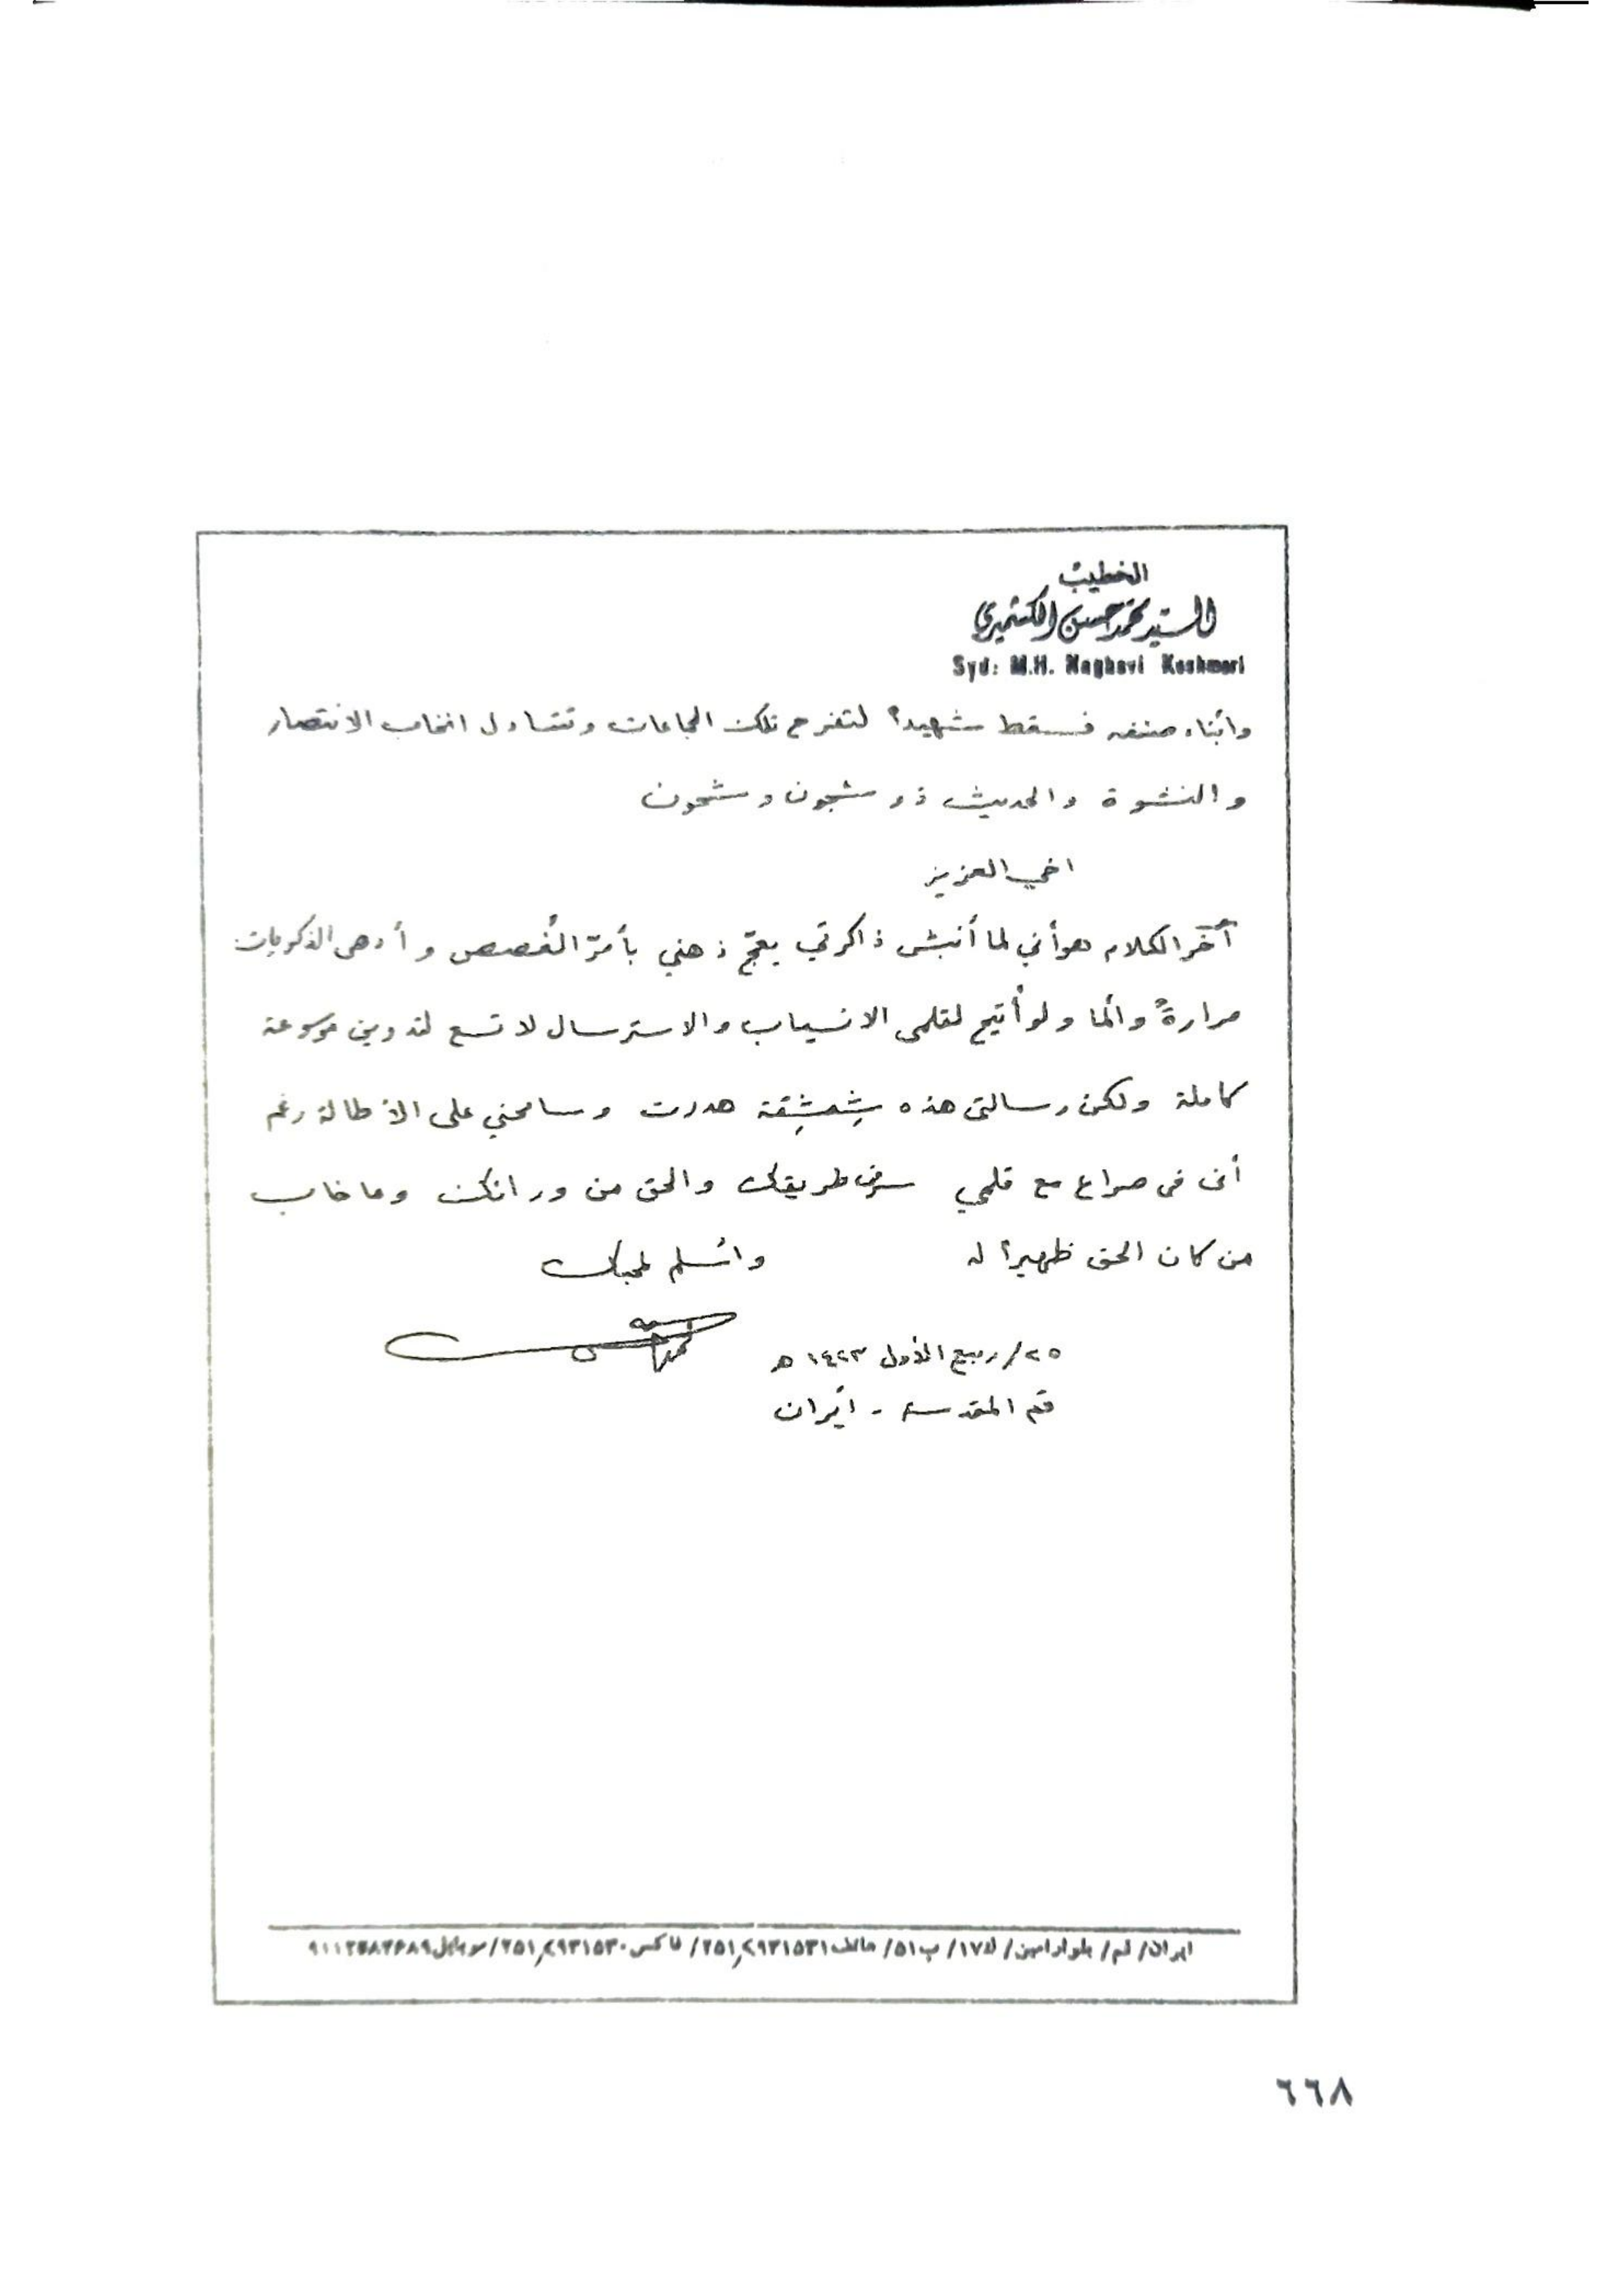 الخطيب
السيد محمد حسين الكشميري
Syd: M.H. Naghavi Keshmeri
وأبناء صنفه فسقط شهيداً لتفرح تلك الجماعات وتتبادل انخاب الانتصار
والنشوة والحديث ذو شجون وشجون
اخي العزيز
آخر الكلام هو أني لما أنبش ذاكرتي يعجّ ذهني بأمرّ الغُصص وأدهى الذكريات
مرارةً وألما ولو أُتيح لقلمي الانسياب والاسترسال لاتسع لتدوين موسوعة
كاملة ولكن رسالتي هذه شِقشِقة هدرت وسامحني على الاطالة رغم
أني في صراع مع قلمي سر في طريقك والحق من ورائك وما خاب
من كان الحق ظهيراً له واسلم لمحبك
٢٥/ربيع الأول ١٤٢٣ هـ
قم المقدسة - ايران
ايران/ قم/ بلوار امين/ ١٧/ ب٥١/ هاتف ٢٩٣١٥٣١ ٢٥١/ فاكس ٢٩٣١٥٣٠ ٢٥١/ موبايل
٦٦٨